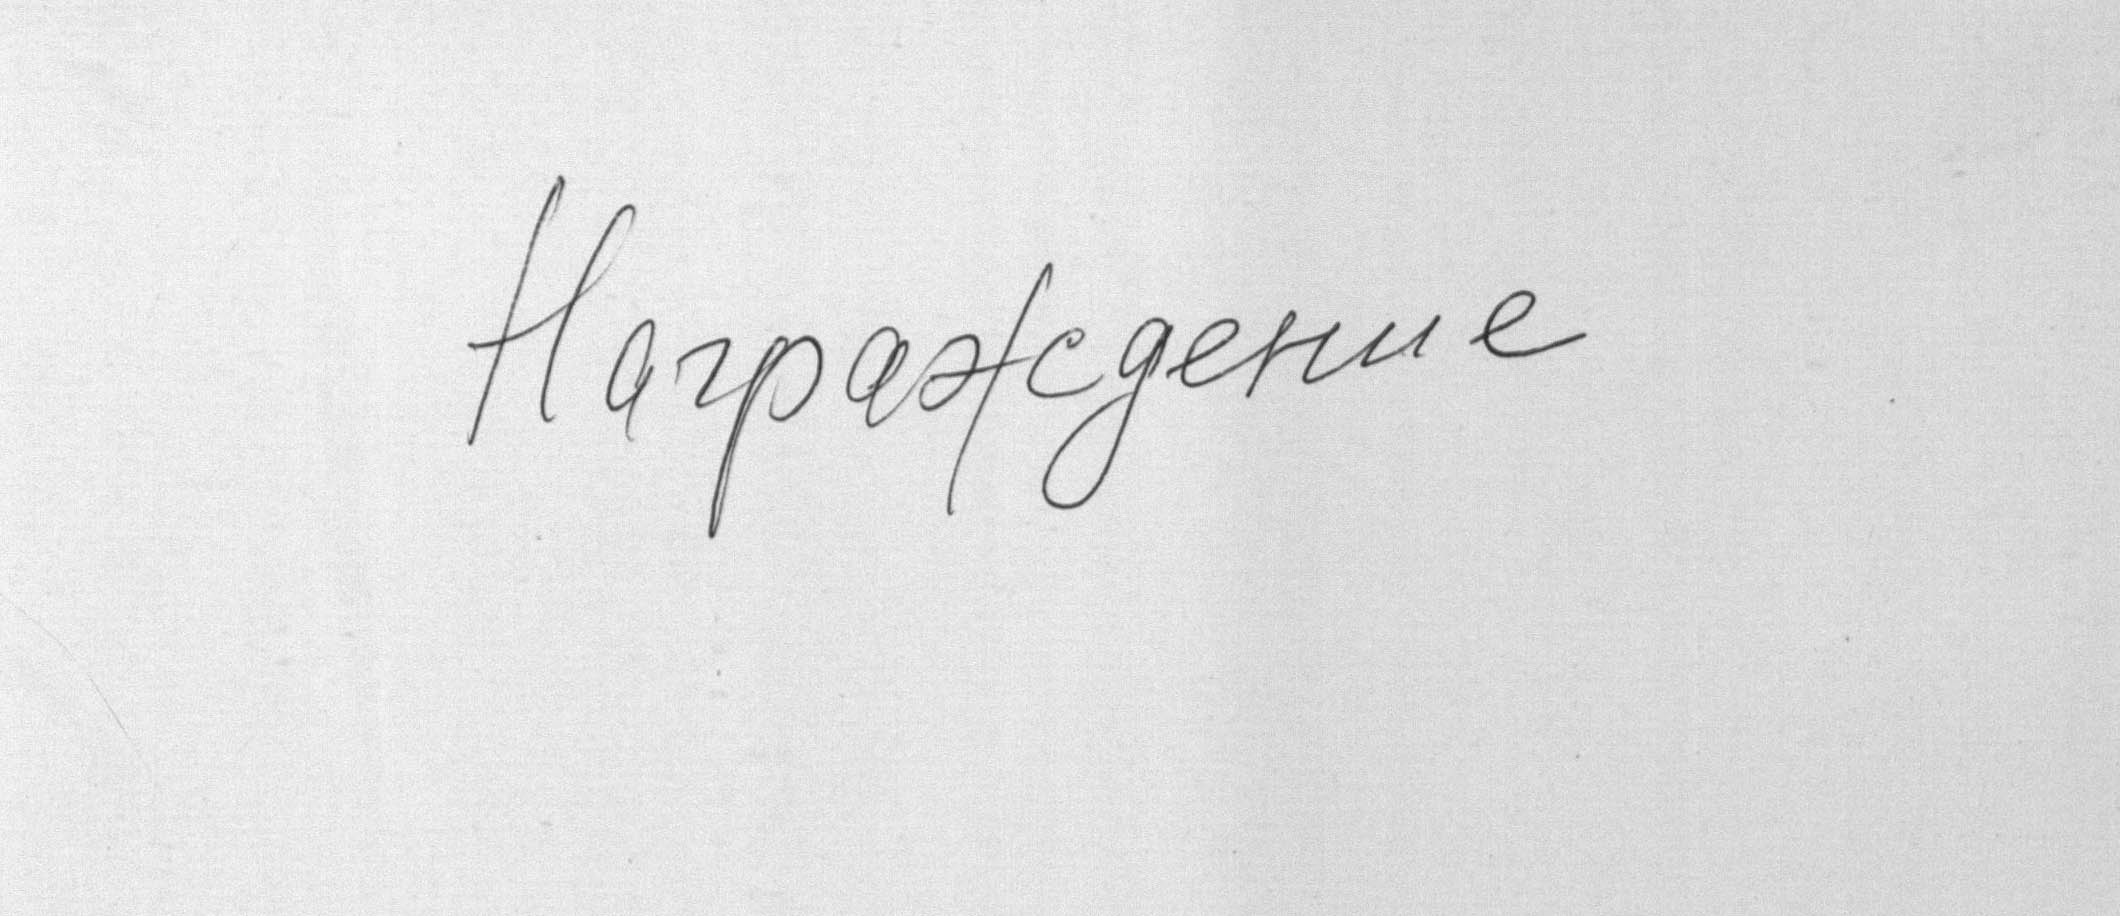 Награждение